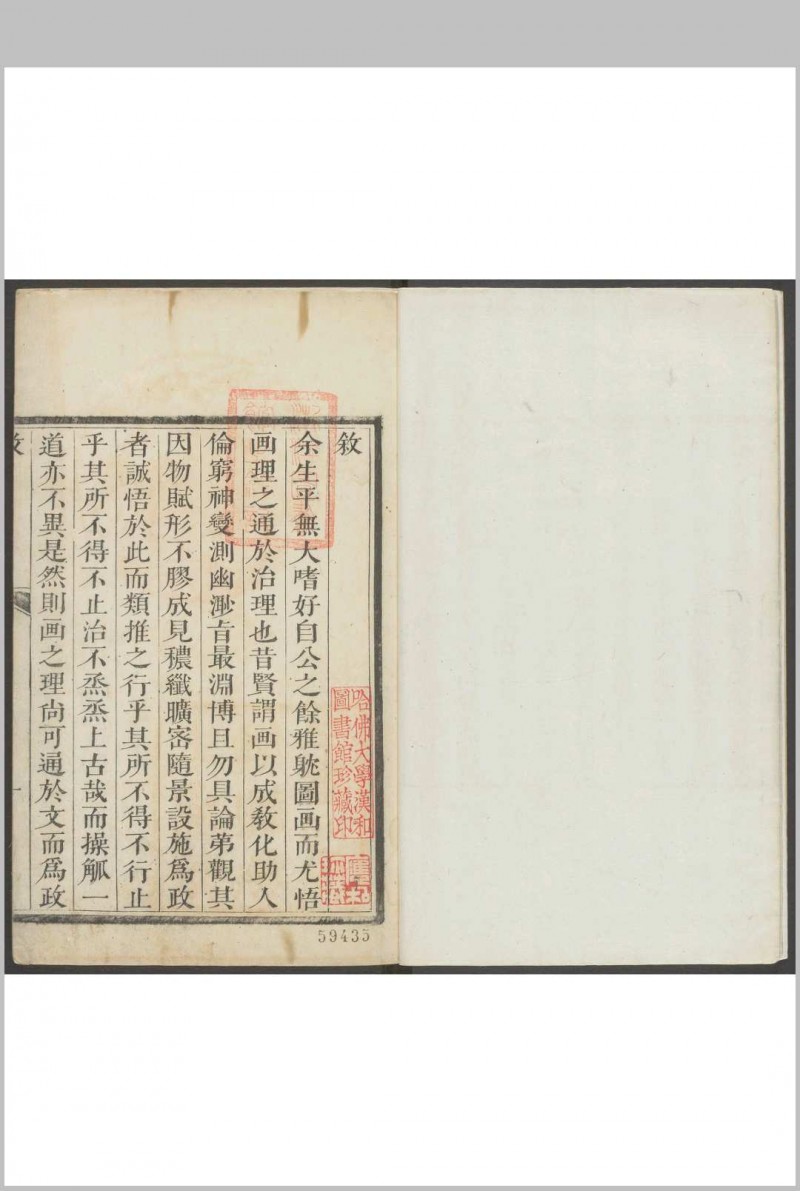 敘
余生平無大嗜好自公之餘雅躭圖画而尤悟
画理之通於治理也昔賢謂画以成教化助人
倫窮神變測幽渺旨最淵博且勿具論弟觀其
因物賦形不膠成見穠纖曠密隨景設施為政
者誠悟於此而類推之行乎其所不得不行止
乎其所不得不止治不烝烝上古哉而操觚一
道亦不異是然則画之理尚可通於文而為政
敘
一
哈佛大學漢和
圖書館珍藏印
59435